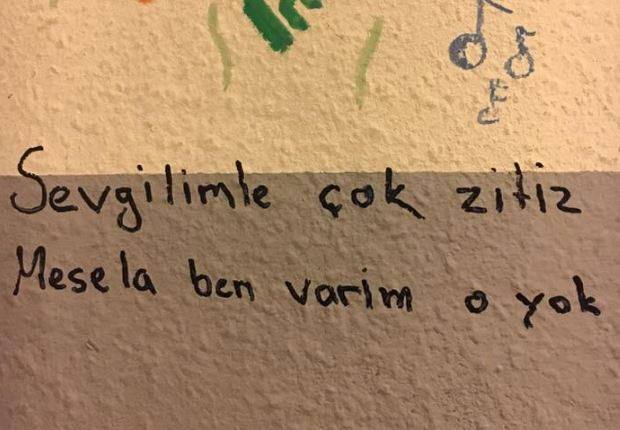 Sevgilimle çok zitiz
Mesela ben varim o yok